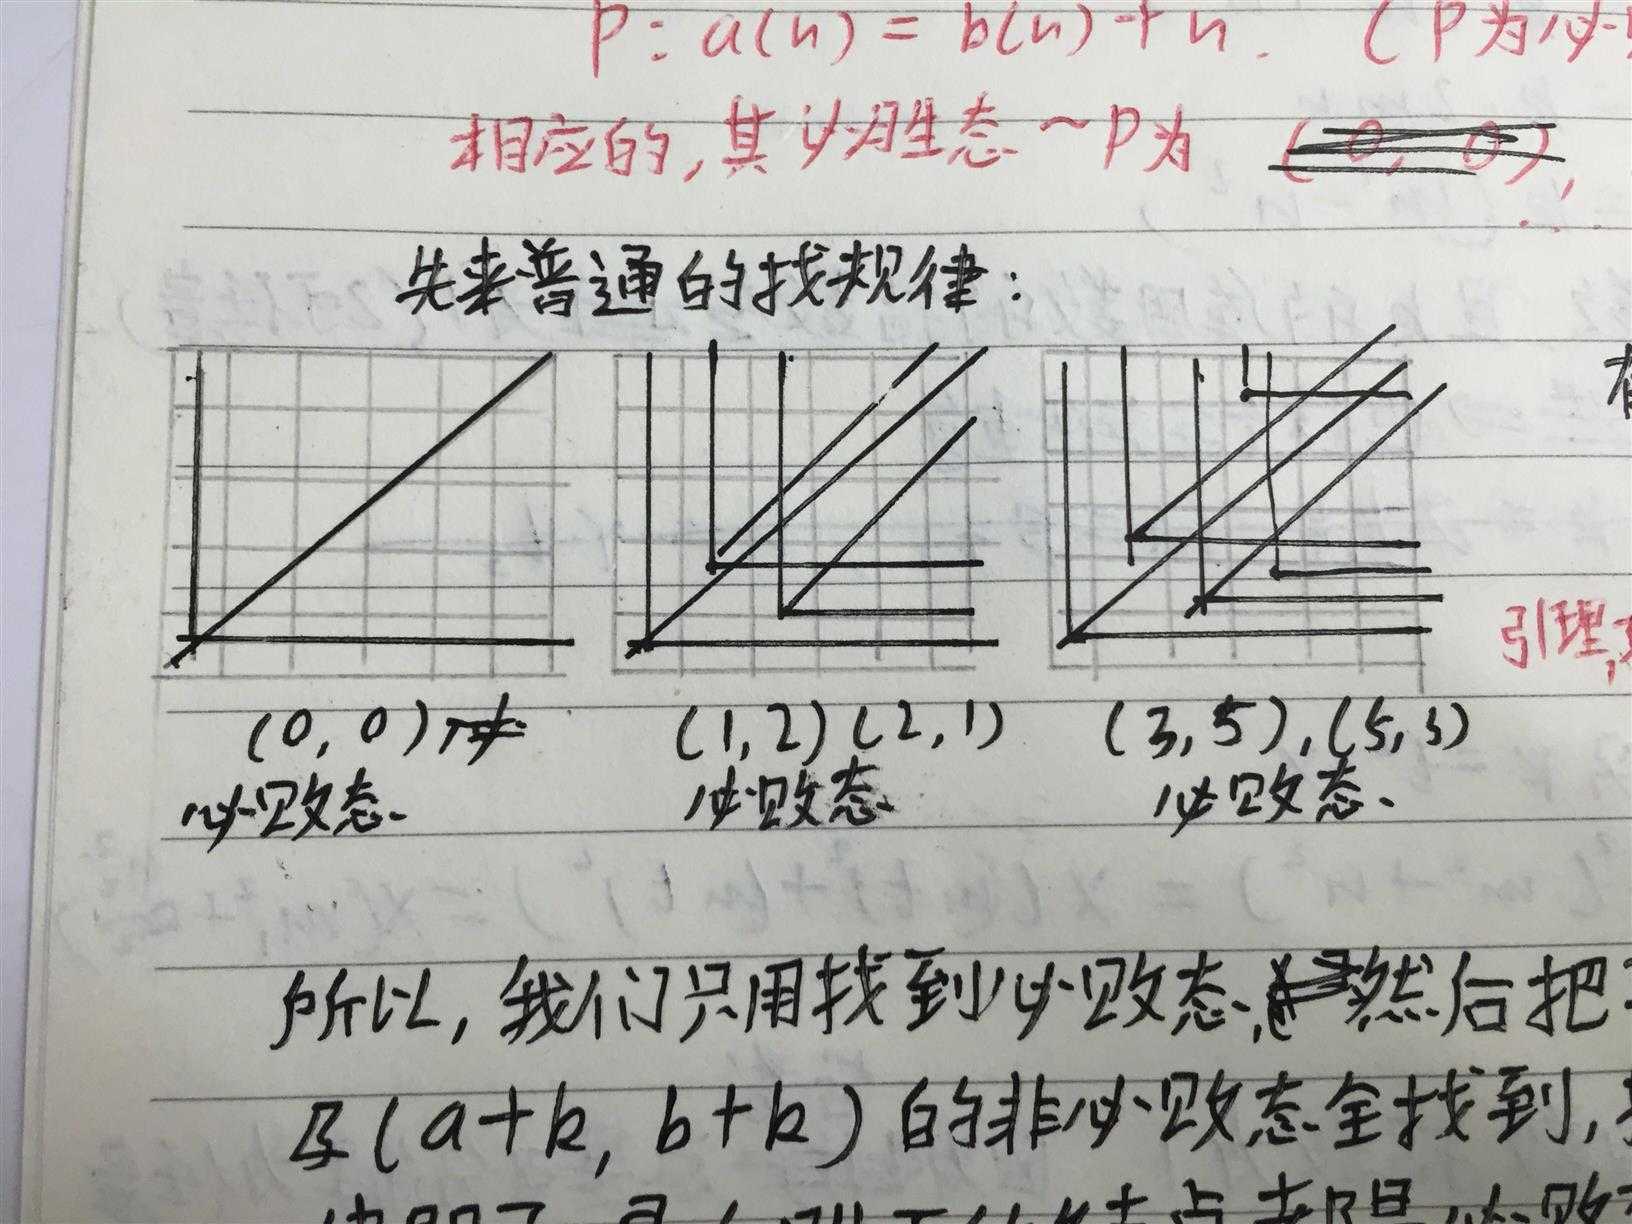 P: a(n) = b(n)+n. (P为必
相应的,其必胜态~P为 (0, 0),
先来普通的找规律:
(0,0) (1,2)(2,1) (3,5),(5,3)
必败态. 必败态. 必败态.
引理,
所以,我们只用找到必败态,然后把
与(a+k, b+k)的非必败态全找到,